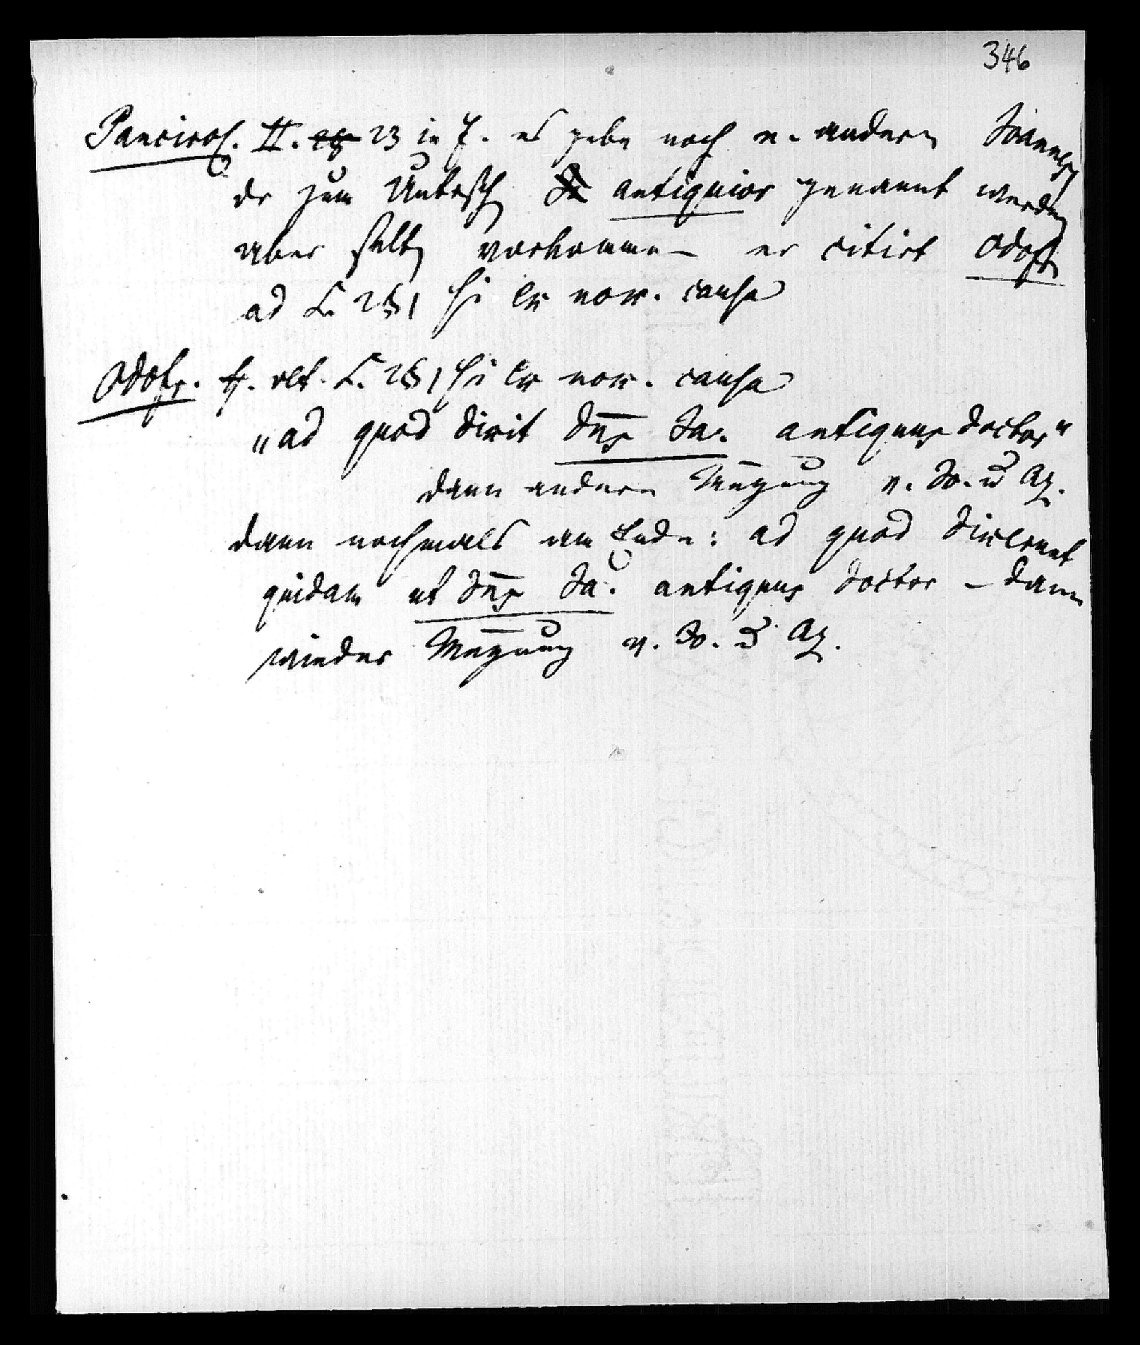 346
Pancirol. II. 23 in f. es gebe noch e. andern Joannes,
der zum Untersch antiquior genannt werde,
aber selten vorkomme – er citirt Odofr.
ad L. 2 § 1 Si ex nox. causa
Odofr. ff. vet. L. 2 § 1 Si ex nox. causa
„ad quod dixit dn̄s Ja. antiquus doctor"
dann andere Meynung v. Jo. u Az.
dann nochmals am Ende: ad quod dixerunt
quidam ut dn̄s Ja. antiquus doctor – dann
wieder Meynung v. Jo. u Az.